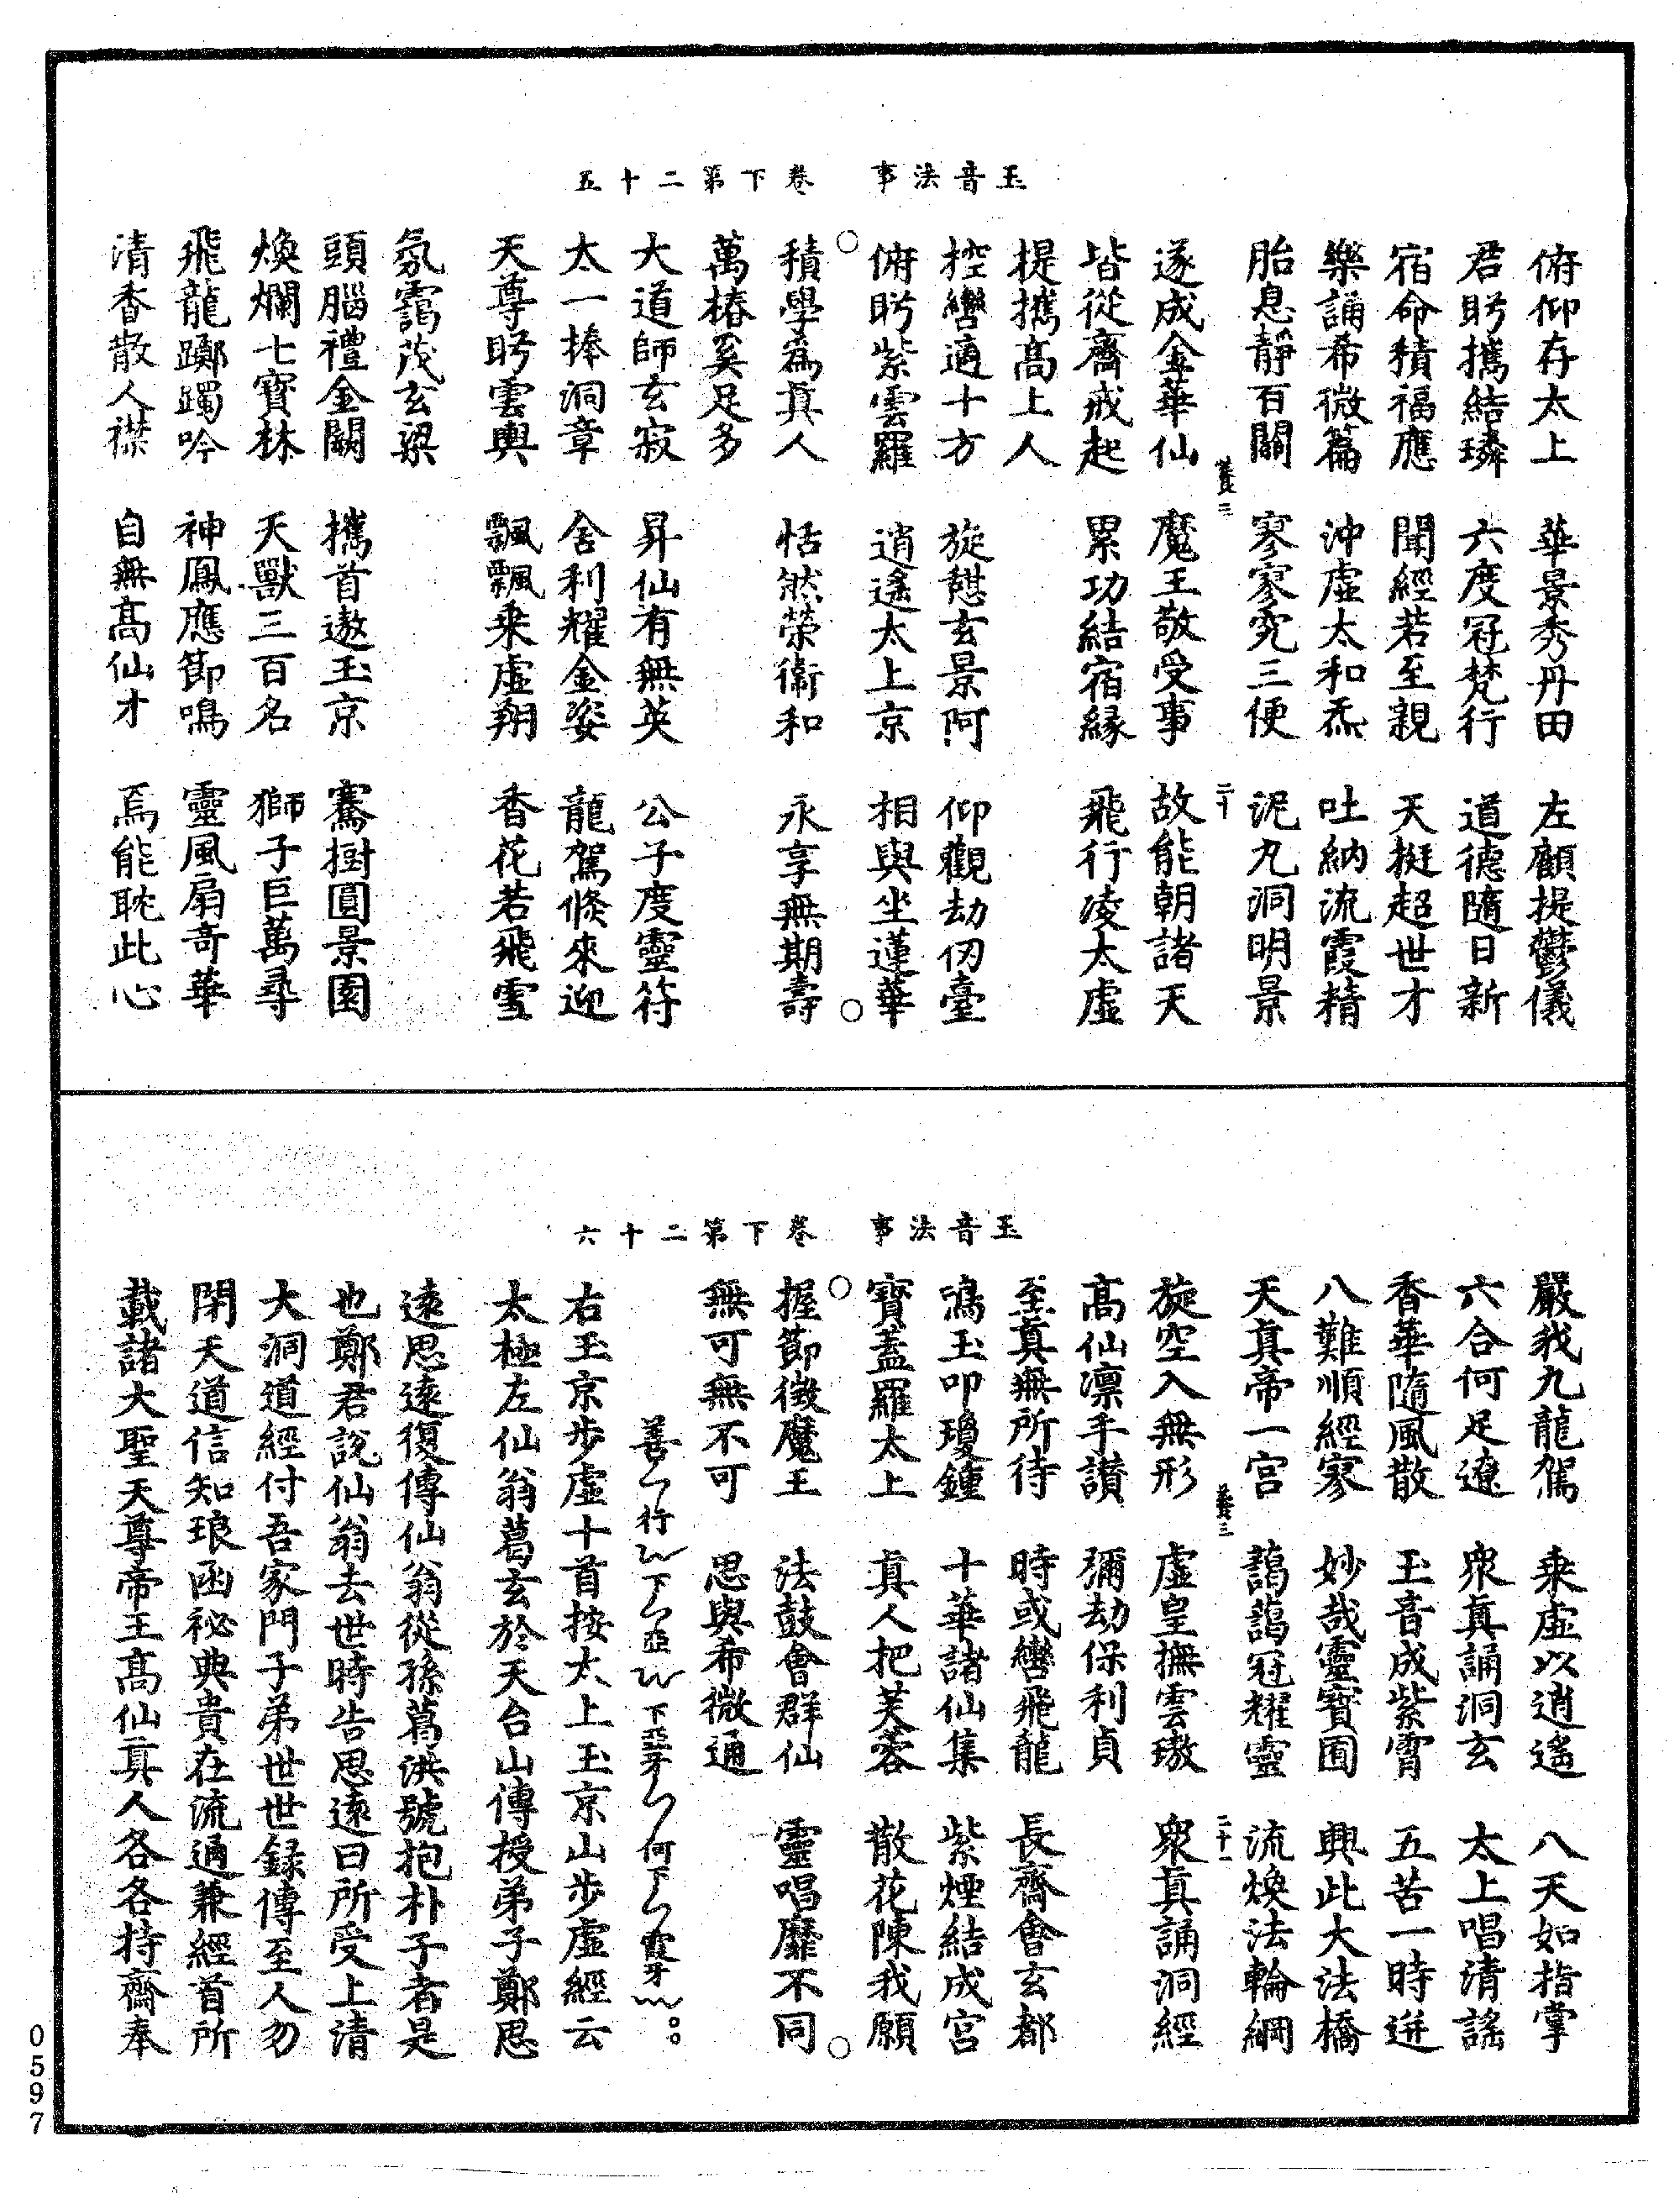 玉音法事　卷下第二十五
俯仰存太上　華景秀丹田　左顧提鬱儀
君眄攜結璘　六度冠梵行　道德隨日新
宿命積福應　聞經若至親　天挺超世才
樂誦希微篇　沖虛太和炁　吐納流霞精
胎息靜百關　寥寥究三便　泥丸洞明景
遂成金華仙　魔王敬受事　故能朝諸天
皆從齋戒起　累功結宿緣　飛行凌太虛
提攜高上人
控轡適十方　旋憇玄景阿　仰觀劫仞臺
俯眄紫雲羅　逍遙太上京　相與坐蓮華
積學為真人　恬然榮衛和　永享無期壽
萬椿奚足多
大道師玄寂　昇仙有無英　公子度靈符
太一捧洞章　舍利耀金姿　龍駕倏來迎
天尊眄雲輿　飄飄乘虛翔　香花若飛雪
氛靄茂玄梁
頭腦禮金闕　攜首遨玉京　騫樹圓景園
煥爛七寶林　天獸三百名　獅子巨萬尋
飛龍躑躅吟　神鳳應節鳴　靈風扇奇華
清香散人襟　自無高仙才　焉能耽此心
玉音法事　卷下第二十六
嚴我九龍駕　乘虛以逍遙　八天如指掌
六合何足遼　眾真誦洞玄　太上唱清謠
香華隨風散　玉音成紫霄　五苦一時迸
八難順經寥　妙哉靈寶囿　興此大法橋
天真帝一宮　藹藹冠耀靈　流煥法輪綱
旋空入無形　虛皇撫雲璈　眾真誦洞經
高仙凛手讚　彌劫保利貞
至真無所待　時或轡飛龍　長齋會玄都
鳴玉叩瓊鐘　十華諸仙集　紫煙結成宮
寶蓋羅太上　真人把芙蓉　散花陳我願
握節徵魔王　法鼓會群仙　靈唱靡不同
無可無不可　思與希微通
善　行　下　亞　下亞牙　何下　霞牙
右玉京步虛十首按太上玉京山步虛經云
太極左仙翁葛玄於天台山傳授弟子鄭思
遠思遠復傳仙翁從孫葛洪號抱朴子者是
也鄭君說仙翁去世時告思遠曰所受上清
大洞道經付吾家門子弟世世錄傳至人勿
閉天道信知琅函祕典貴在流通兼經首所
載諸大聖天尊帝王高仙真人各各持齋奉
0597